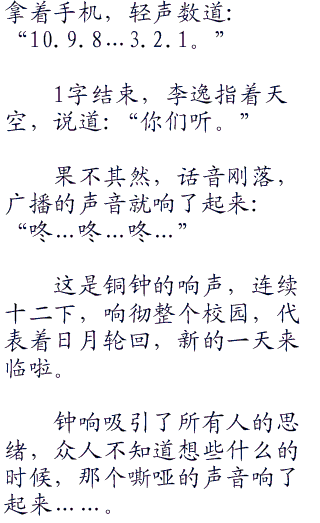 拿着手机，轻声数道：
“10.9.8…3.2.1。”
1字结束，李逸指着天
空，说道：“你们听。”
果不其然，话音刚落，
广播的声音就响了起来：
“咚…咚…咚…”
这是铜钟的响声，连续
十二下，响彻整个校园，代
表着日月轮回，新的一天来
临啦。
钟响吸引了所有人的思
绪，众人不知道想些什么的
时候，那个嘶哑的声音响了
起来……。